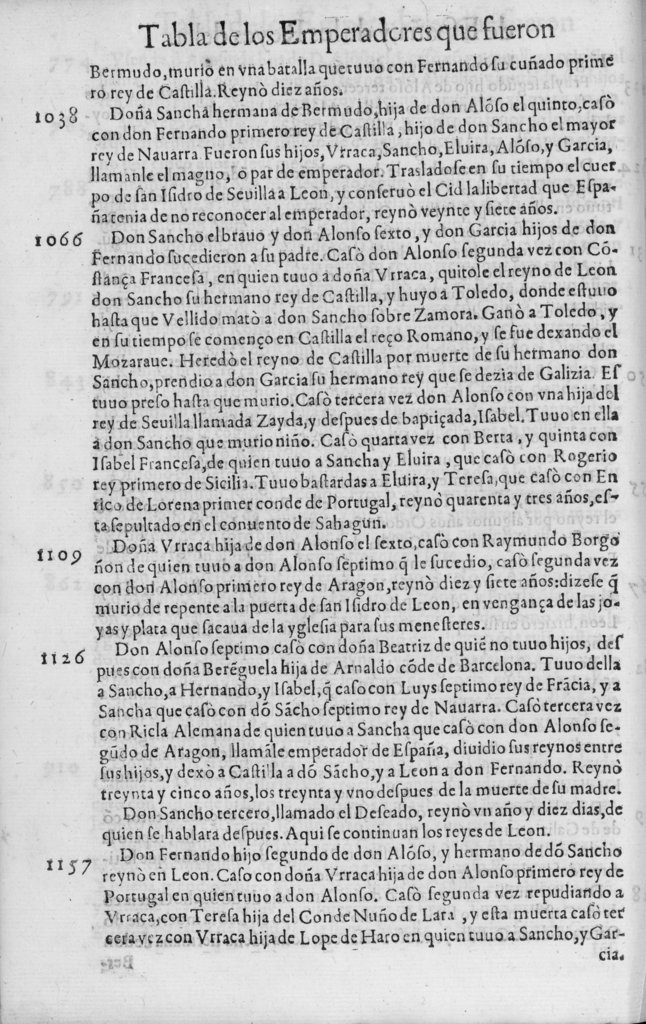 Tabla de los Emperadores que fueron
Bermudo, murio en vna batalla que tuuo con Fernando su cuñado prime
ro rey de Castilla. Reynò diez años.
1038 Doña Sancha hermana de Bermudo, hija de don Alõso el quinto, casò
con don Fernando primero rey de Castilla, hijo de don Sancho el mayor
rey de Nauarra Fueron sus hijos, Vrraca, Sancho, Eluira, Alõso, y Garcia,
llamanle el magno, o par de emperador. Trasladose en su tiempo el cuer
po de san Isidro de Seuilla a Leon, y conseruò el Cid la libertad que Espa-
ña tenia de no reconocer al emperador, reynò veynte y siete años.
1066 Don Sancho el brauo y don Alonso sexto, y don Garcia hijos de don
Fernando sucedieron a su padre. Casò don Alonso segunda vez con Cõ-
stança Francesa, en quien tuuo a doña Vrraca, quitole el reyno de Leon
don Sancho su hermano rey de Castilla, y huyo a Toledo, donde estuuo
hasta que Vellido matò a don Sancho sobre Zamora. Ganò a Toledo, y
en su tiempo se començo en Castilla el reço Romano, y se fue dexando el
Mozaraue. Heredò el reyno de Castilla por muerte de su hermano don
Sancho, prendio a don Garcia su hermano rey que se dezia de Galizia. Es
tuuo preso hasta que murio. Casò tercera vez don Alonso con vna hija del
rey de Seuilla llamada Zayda, y despues de baptiçada, Isabel. Tuuo en ella
a don Sancho que murio niño. Casò quarta vez con Berta, y quinta con
Isabel Francesa, de quien tuuo a Sancha y Eluira, que casò con Rogerio
rey primero de Sicilia. Tuuo bastardas a Eluira, y Teresa, que casò con En
rico de Lorena primer conde de Portugal, reynò quarenta y tres años, es-
ta sepultado en el conuento de Sahagun.
1109 Doña Vrraca hija de don Alonso el sexto, casò con Raymundo Borgo
ñon de quien tuuo a don Alonso septimo q̃ le sucedio, casò segunda vez
con don Alonso primero rey de Aragon, reynò diez y siete años: dizese q̃
murio de repente a la puerta de san Isidro de Leon, en vengança de las jo-
yas y plata que sacaua de la yglesia para sus menesteres.
1126 Don Alonso septimo casò con doña Beatriz de quiē no tuuo hijos, des
pues con doña Berēguela hija de Arnaldo cõde de Barcelona. Tuuo della
a Sancho, a Hernando, y Isabel, q̃ caso con Luys septimo rey de Frãcia, y a
Sancha que casò con dõ Sãcho septimo rey de Nauarra. Casò tercera vez
con Ricla Alemana de quien tuuo a Sancha que casò con don Alonso se-
gũdo de Aragon, llamãle emperador de España, diuidio sus reynos entre
sus hijos, y dexò a Castilla a dõ Sãcho, y a Leon a don Fernando. Reynò
treynta y cinco años, los treynta y vno despues de la muerte de su madre.
Don Sancho tercero, llamado el Deseado, reynò vn año y diez dias, de
quien se hablara despues. Aqui se continuan los reyes de Leon.
1157 Don Fernando hijo segundo de don Alõso, y hermano de dõ Sancho
reynò en Leon. Caso con doña Vrraca hija de don Alonso primero rey de
Portugal en quien tuuo a don Alonso. Casò segunda vez repudiando a
Vrraca, con Teresa hija del Conde Nuño de Lara, y esta muerta casò ter
cera vez con Vrraca hija de Lope de Haro en quien tuuo a Sancho, y Gar-
cia.